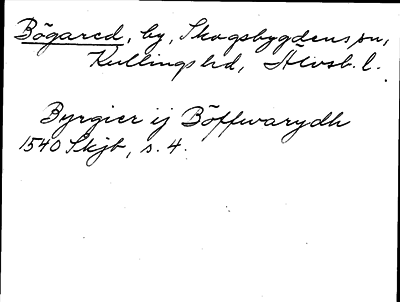 Bögared, by, Skogsbygdens sn,
Kullings hd, Älvsb. l.
Byrgier ij Böffwarydh
1540 Skjb, s. 4.